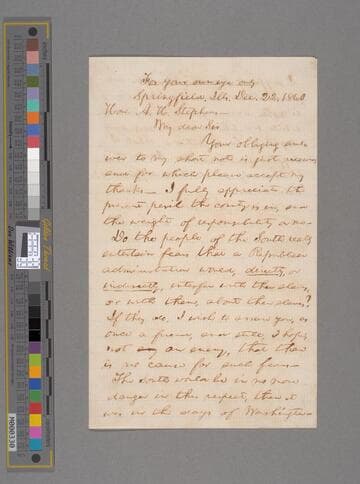 For your own eye only
Springfield, Ills. Dec. 22, 1860
Hon. A. H. Stephens—
My dear Sir
Your obliging ans-
wer to my short note is just receiv-
ed, and for which please accept my
thanks— I fully appreciate the
present peril the country is in, and
the weight of responsibility on me—
Do the people of the South really
entertain fears that a Republican
administration would, directly, or
indirectly, interfere with their slaves,
or with them, about their slaves?
If they do, I wish to assure you, as
once a friend, and still, I hope,
not an enemy, that there
is no cause for such fears—
The South would be in no more
danger in this respect, than it
was in the days of Washington—
M000330